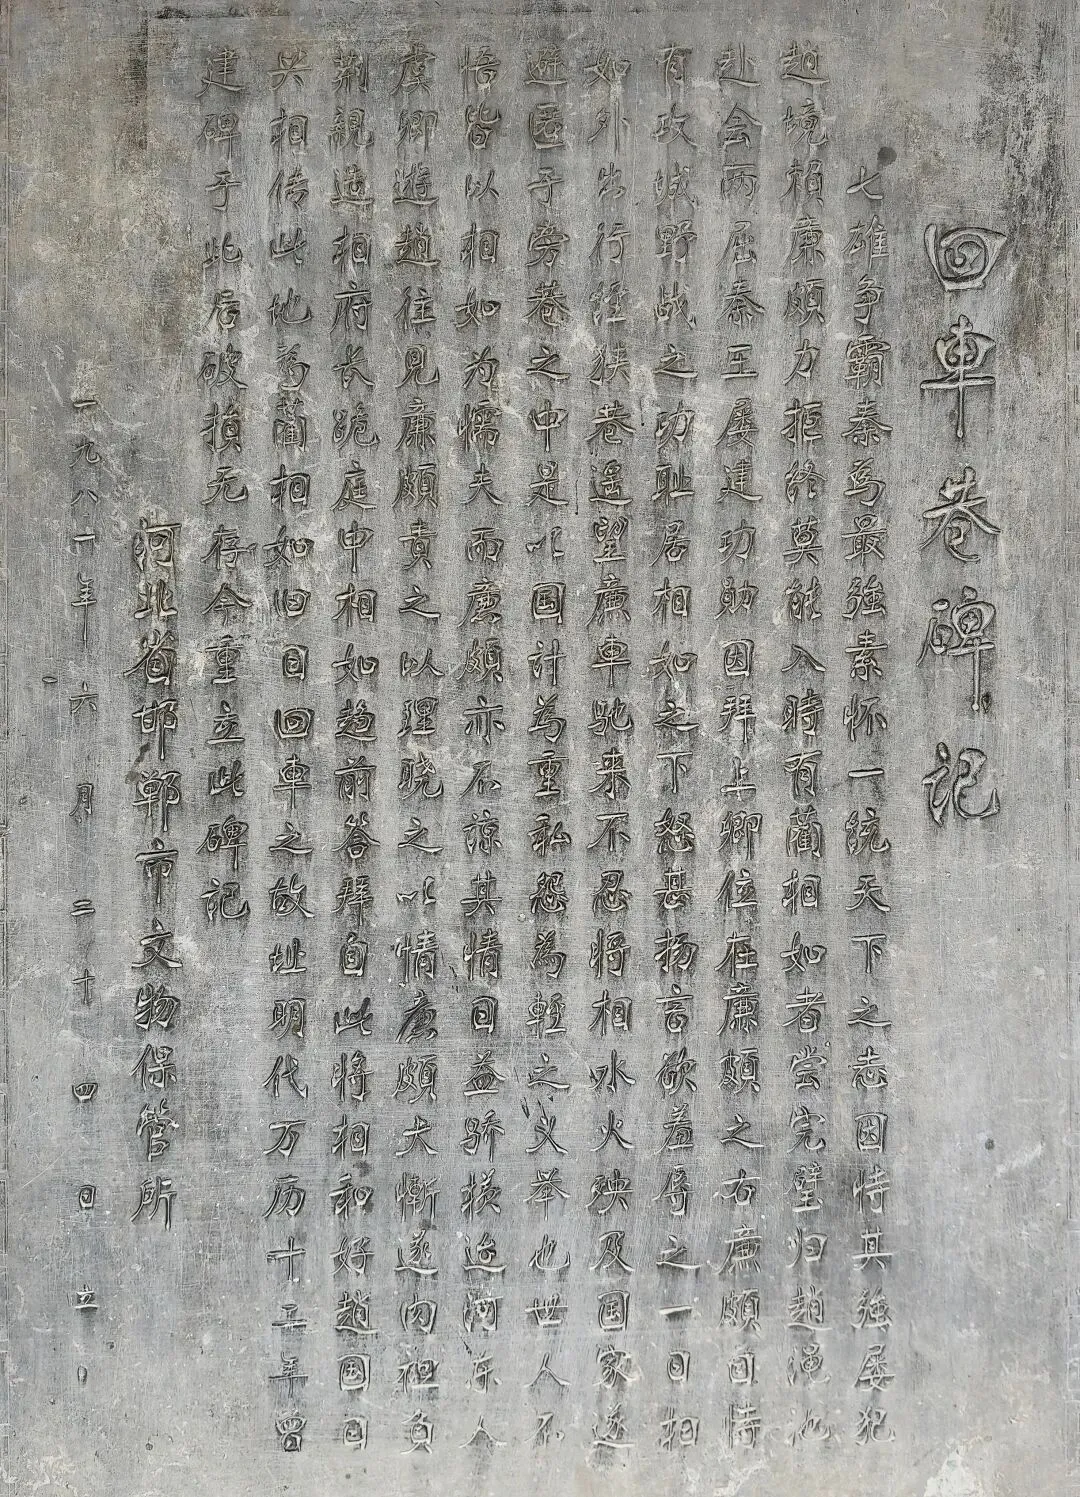 回車巷碑记
七雄争霸秦為最強素怀一統天下之志因恃其強屡犯
趙境赖廉颇力拒终莫能入時有藺相如者尝完璧归趙渑池
赴会而屈秦王屡建功勋因拜上卿位在廉頗之右廉頗自恃
有攻城野战之功耻居相如之下怒甚扬言欲羞辱之一日相
如外出行径狭巷遥望廉車驰来不忍将相水火殃及国家遂
避匿于旁巷之中是以国计為重私怨為輕之义举也世人不
悟皆以相如为懦夫而廉頗亦不谅其情日益骄横迨河东人
虞卿遊趙往見廉頗責之以理晓之以情廉頗大慚遂内袒负
荆親造相府长跪庭申相如趋前答拜自此将相和好趙国日
兴相传此地為藺相如旧日回車之故址明代万历十二年曾
建碑于此居破損无存今重立此碑记
河北省邯郸市文物保管所
一九八一年六月三十四日立